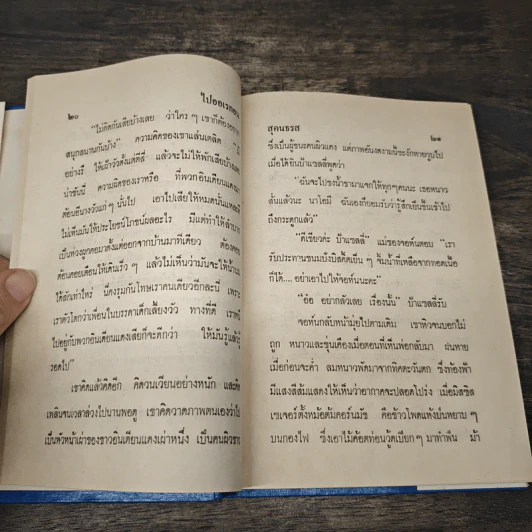 ๒๐ ไปออเรกอน
“ไม่คิดกันเสียบ้างเลย ว่าใคร ๆ เขาก็ต้องอยาก
สนุกสนานกันบ้าง” ความคิดของเขาแล่นเตลิด
อย่างรึ ให้เฝ้าวัวตั้งแต่ตีสี่ แล้วจะไม่ให้พักเสียบ้างเลย
น่าขันนี่ ความผิดของเราหรือ ที่พวกอินเดียนแดงมา
ต้อนฝีนางวัวแก่ ๆ นั้นไป เอาไปเสียให้หมดนั่นแหละดี
ไม่เห็นมันให้ประโยชน์โภชน์ผลอะไร มีแต่ทำให้ลำบาก
เป็นห่วงผูกคอมาตั้งแต่ออกจากบ้านมาทีเดียว ต้องคอย
ต้อนคอยเตือนให้เดินเร็ว ๆ แล้วไม่เห็นว่ามันจะให้น้ำนม
ได้สักเท่าไหร่ นี่คงรุมกันโทษเราคนเดียวอีกละนี่ เพราะ
เราตัวโตกว่าเพื่อนในบรรดาเด็กเลี้ยงวัว ทางที่ดี เราหนี
ไปอยู่กับพวกอินเดียนแดงเสียก็จะดีกว่า ให้มันรู้แล้วรู้
รอดไป”
เขาคิดแล้วคิดอีก คิดวนเวียนอย่างหนัก และคิด
เพลินจนเวลาล่วงไปนานพอดู เขาคิดวาดภาพตนเองว่าไป
เป็นหัวหน้าเผ่าของชาวอินเดียนแดงเผ่าหนึ่ง เป็นคนผิวขาว
สุคนธรส ๒๑
ซึ่งเป็นผู้ชนะคนผิวแดง แต่ภาพอันงดงามนี้ชะงักหายวูบไป
เมื่อได้ยินป้าแซลลี่พูดว่า
“ฉันจะไปชงน้ำชามาแจกให้ทุกๆคนนะ เธอหนาว
สั่นแล้วนะ นาโอมี ฉันเองก็ยอมรับว่ารู้สึกเย็นชื้นเข้าไป
ถึงกระดูกแล้ว”
“ดีเชียวค่ะ ป้าแซลลี่” แม่ของจอห์นตอบ “เรา
รับประทานขนมปังบิสกิ้ตเย็น ๆ จิ้มน้ำที่เหลือจากทอดเนื้อ
ก็ได้.... อย่าเอาไปให้จอห์นนะคะ”
“อ๋อ อย่ากลัวเลย เรื่องนั้น” ป้าแซลลี่รับ
จอห์นกลับหน้ามุ่ยไปตามเดิม เขาหิวจนบอกไม่
ถูก หนาวและขุ่นเคืองเมื่อตอนที่เห็นพ่อกลับมา ฝนหาย
เมื่อก่อนจะค่ำ ลมหนาวพัดมาจากทิศตะวันตก ซึ่งท้องฟ้า
มีแสงสีส้มแสดงให้เห็นว่าอากาศจะปลอดโปร่ง เมื่อมิสซิส
เซเจอร์ตั้งหม้อต้มคอร์นมัช คือข้าวโพดแห้งบ่นหยาบ ๆ
บนกองไฟ ซึ่งเอาไม้ค้อตท่อนวู้ดเปียก ๆ มาทำฟืน ม้า